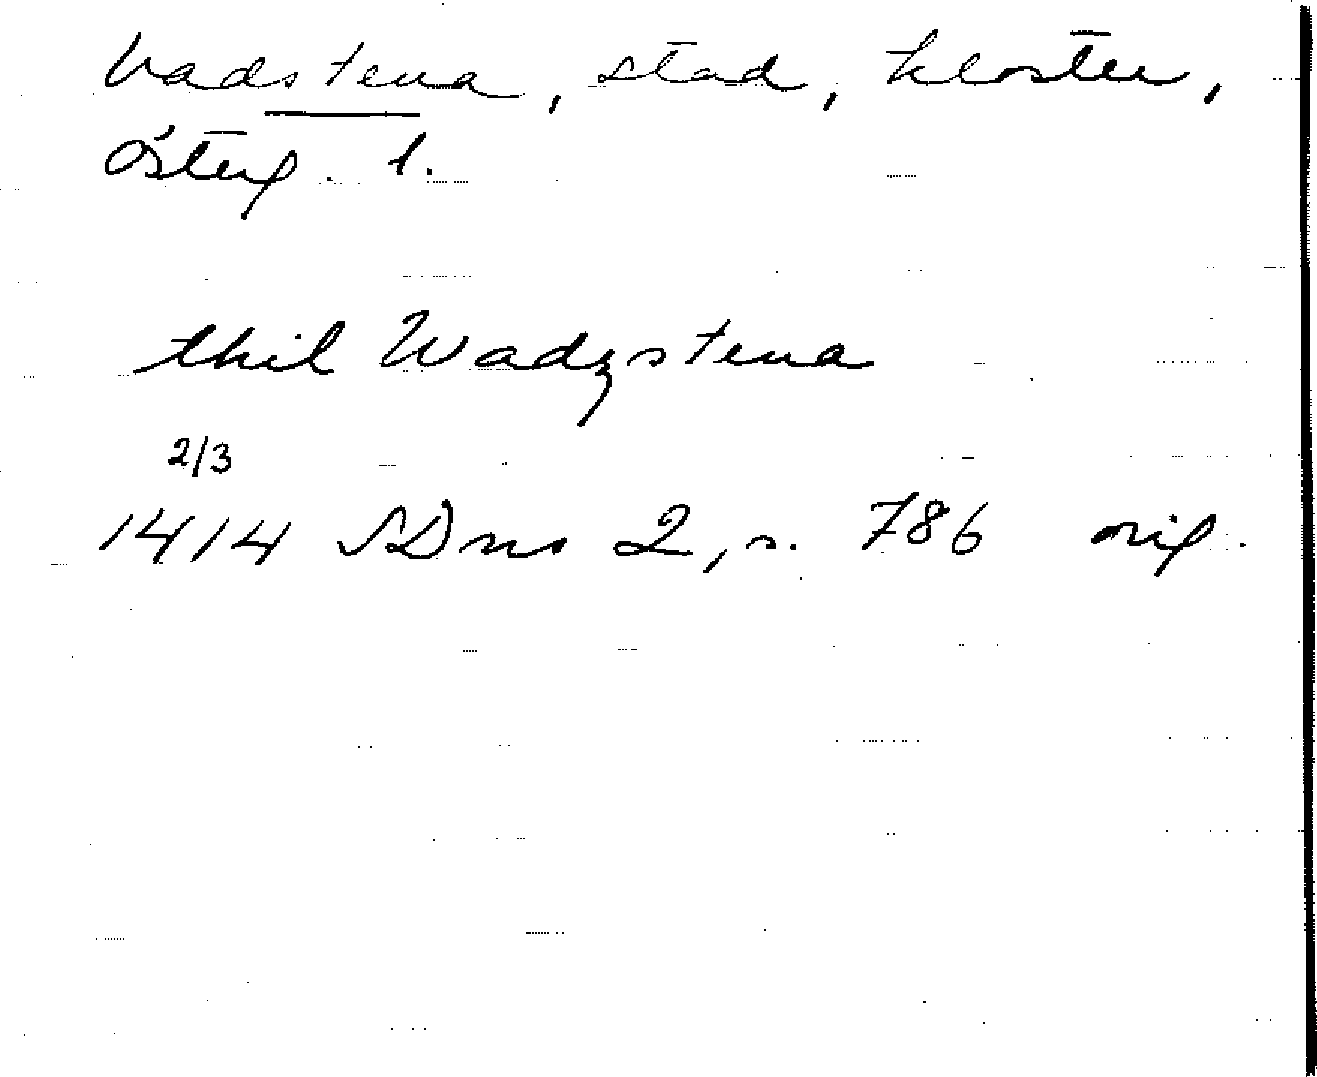 Vadstena, stad, kloster,
Österg. l.
thil Wadzstena
2/3
1414 SDns 2, s. 786 orig.